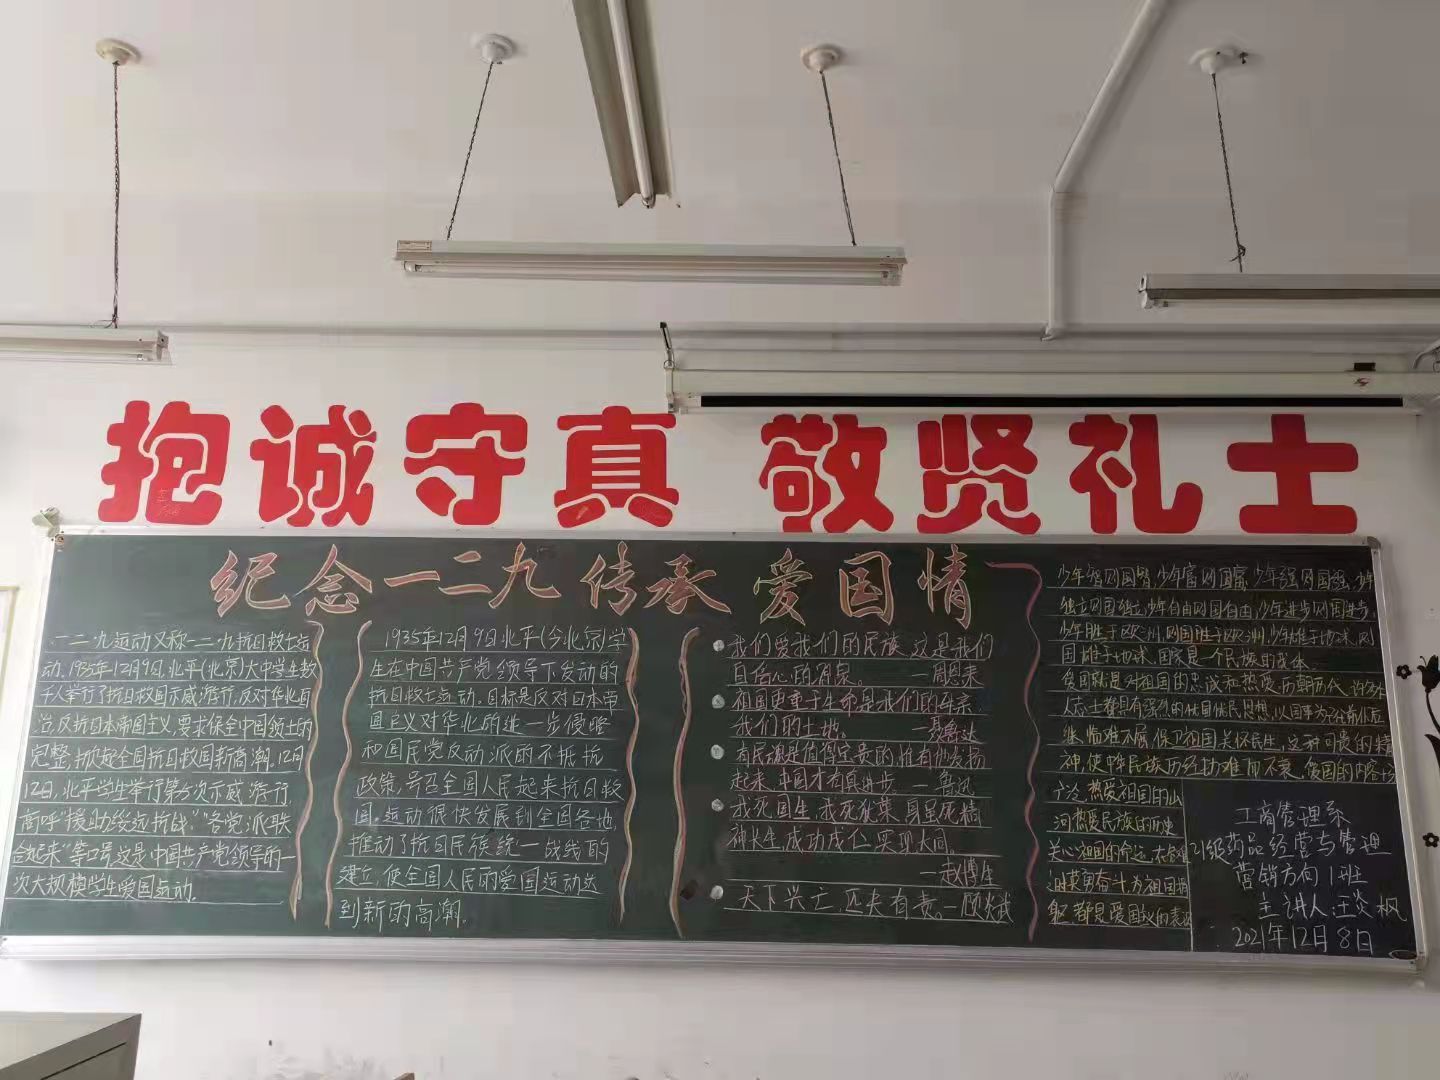 抱诚守真 敬贤礼士
纪念一二九 传承 爱国情
一二九运动又称一二九抗日救亡运
动,1935年12月9日,北平(北京)大中学生数
千人举行了抗日救国示威游行,反对华北自
治,反抗日本帝国主义,要求保全中国领土的
完整,掀起全国抗日救国新高潮。12月
12日,北平学生举行第五次示威游行,
高呼"援助绥远抗战","各党派联
合起来"等口号,这是中国共产党领导的一
次大规模学生爱国运动。
1935年12月9日北平(今北京)学
生在中国共产党领导下发动的
抗日救亡运动。目标是反对日本帝
国主义对华北的进一步侵略
和国民党反动派的不抵抗
政策,号召全国人民起来抗日救
国。运动很快发展到全国各地,
推动了抗日民族统一战线的
建立,使全国人民的爱国运动达
到新的高潮。
我们爱我们的民族,这是我们
自信心的源泉。 —周恩来
祖国更重于生命,是我们的母亲
我们的土地。 —聂鲁达
有民魂是值得宝贵的,惟有他发扬
起来,中国才有真进步。—鲁迅
我死国生,我死犹荣,身虽死精
神长生,成功成仁,实现大同。
—赵博生
天下兴亡,匹夫有责。—顾炎武
少年智则国智,少年富则国富,少年强则国强,少年
独立则国独立,少年自由则国自由,少年进步则国进步,
少年胜于欧洲,则国胜于欧洲,少年雄于地球,则
国雄于地球。国家是一个民族的载体
爱国就是对祖国的忠诚和热爱,历朝历代,许多仁
人志士都具有强烈的忧国忧民思想,以国事为己任,前仆后
继,临难不屈,保卫祖国,关怀民生,这种可贵的精
神,使中华民族历经劫难而不衰。爱国的内容十分
广泛,热爱祖国的山
河,热爱民族的历史
关心祖国的命运,在危难
时英勇奋斗,为祖国捐
躯,都是爱国主义的表现
工商管理系
21级药品经营与管理
营销方向1班
主讲人:
2021年12月8日